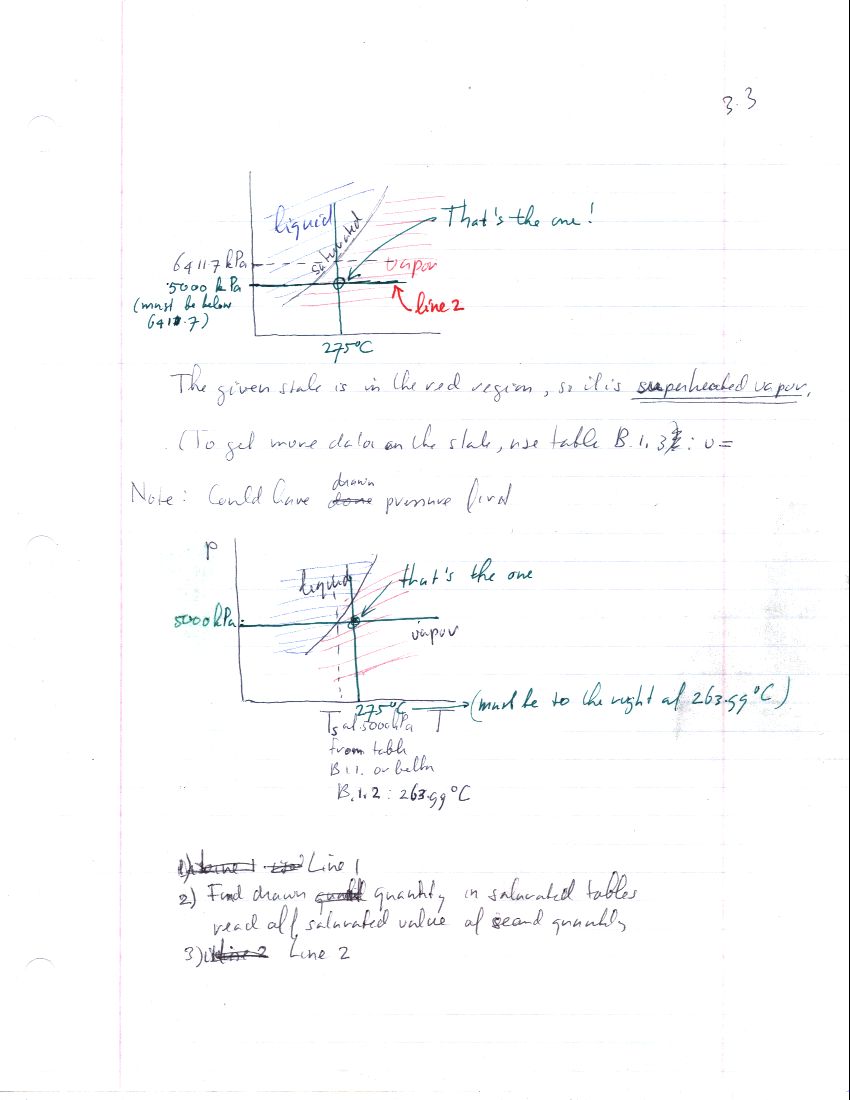 3.3
liquid
saturated
That's the one!
6411.7 kPa
vapor
5000 kPa
(must be below
6411.7)
line 2
275°C
The given state is in the red region, so it is superheated vapor.
(To get more data on the state, use table B.1.3: υ =
Note: Could have done drawn pressure first
P
liquid
that's the one
5000 kPa
vapor
275°C (must be to the right of 263.99°C)
Ts at 5000 kPa T
from table
B.1.1. or better
B.1.2 : 263.99°C
1) Line 1
2) Find drawn quantity in saturated tables
read off saturated value of second quantity
3) Line 2 Line 2